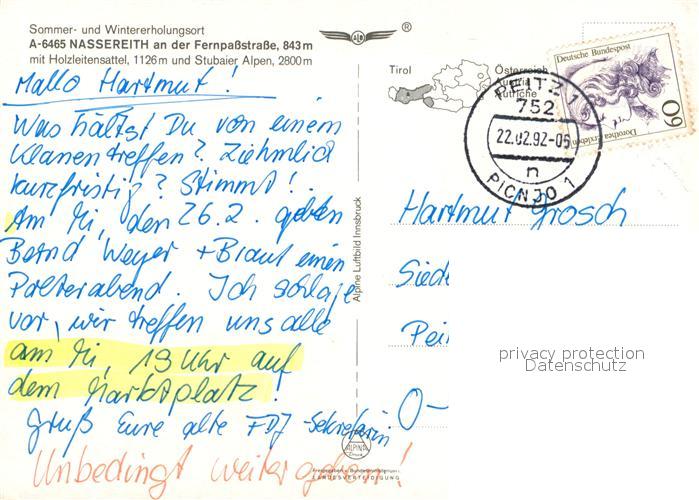 Sommer- und Wintererholungsort
A-6465 NASSEREITH an der Fernpaßstraße, 843 m
mit Holzleitensattel, 1126 m und Stubaier Alpen, 2800 m
Hallo Hartmut!
Was hältst Du von einem
Klanentreffen? Ziehmlich
kurzfristig? Stimmt!
Am Mi, den 26.2. geben
Bernd Weyer + Braut einen
Polterabend. Ich schlage
vor, wir treffen uns alle
am Mi, 19 Uhr auf
dem Marktplatz!
Gruß Eure alte FDJ-Sekretärin
Unbedingt weitergeben!
ALPINA
Druck
Freigegeben v. Bundesministerium
LANDESVERTEIDIGUNG
Alpine Luftbild Innsbruck
®
Tirol
Österreich
Austria
Autriche
Deutsche Bundespost
Dorothea Erxleben
60
PEITZ
752
22.02.92-05
n
PICNJO 1
Hartmut Grosch
Sied
Pei
O-
privacy protection
Datenschutz